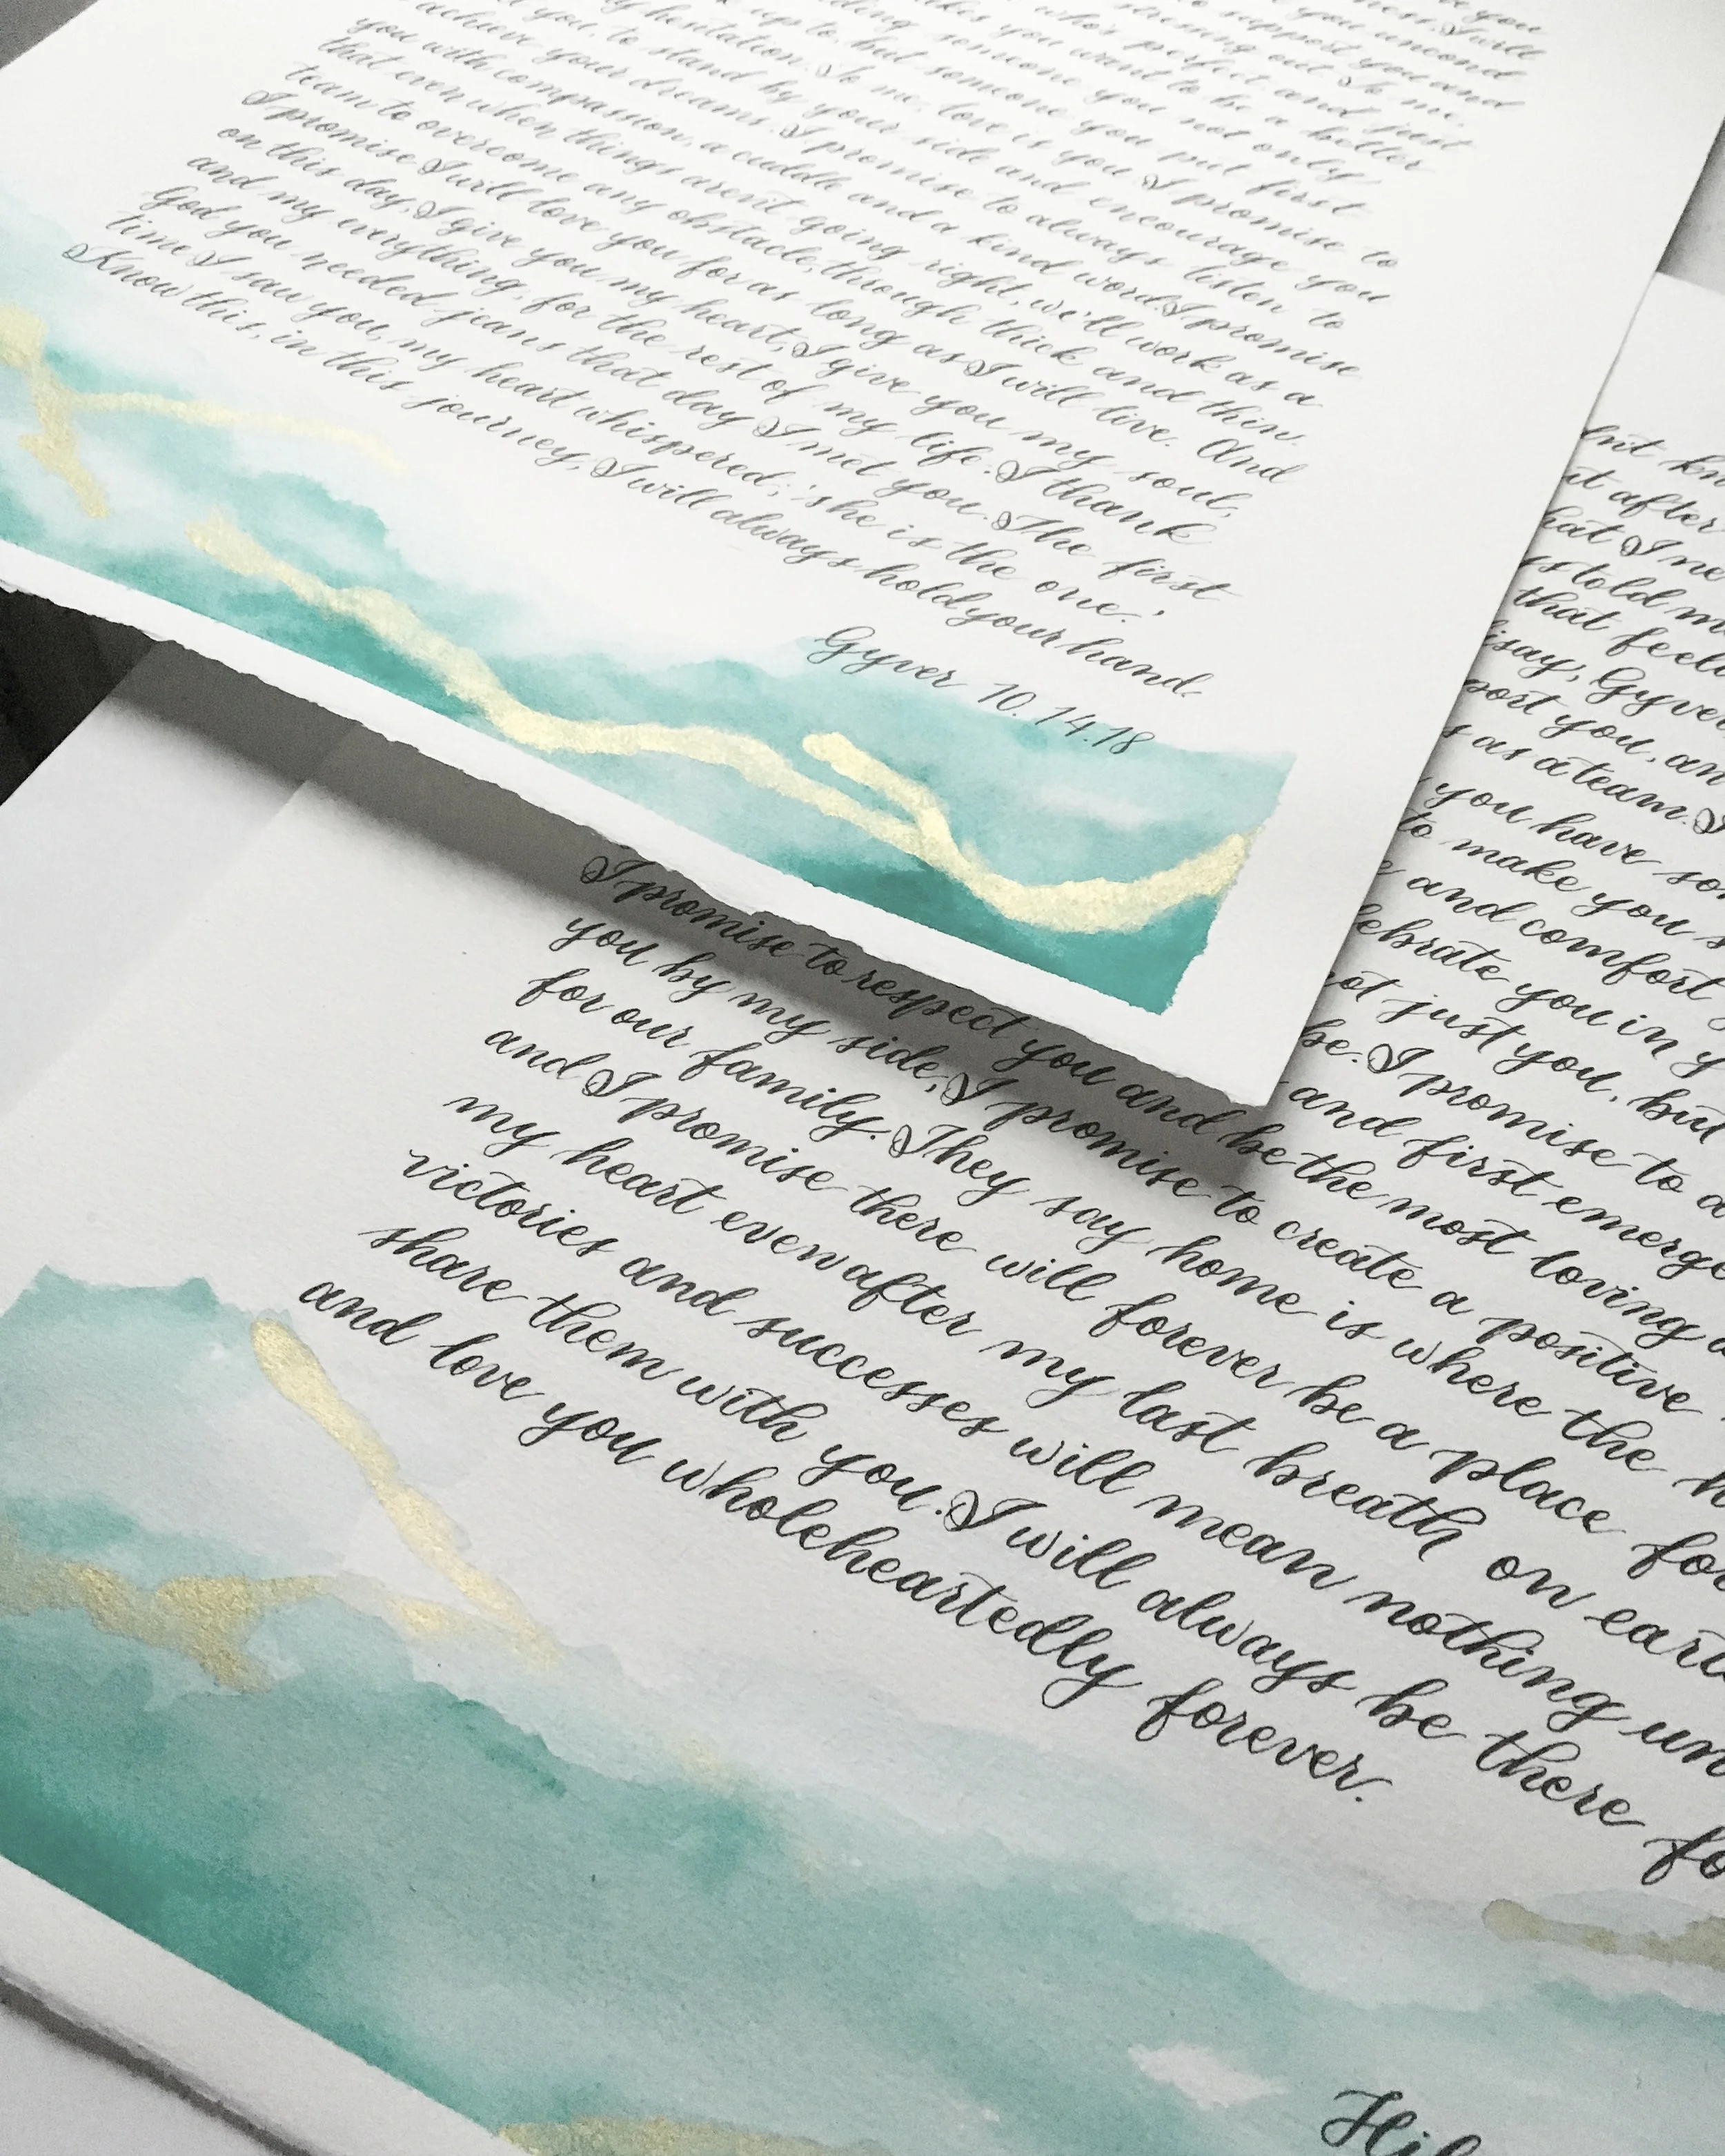 you uncond
to support you and
stressing out. To me,
who's perfect and just
you want to be a better
someone you not only
up to, but someone you put first
hesitation. To me, love is you. I promise to
you, to stand by your side and encourage you
achieve your dreams. I promise to always listen to
you with compassion, a cuddle and a kind word. I promise
that even when things aren't going right, we'll work as a
team to overcome any obstacle, through thick and thin.
I promise I will love you for as long as I will live. And
on this day, I give you my heart, I give you my soul,
and my everything, for the rest of my life. I thank
God you needed jeans that day I met you. The first
time I saw you, my heart whispered; 'she is the one.'
Know this, in this journey, I will always hold your hand.
Gyver 10.14.18
after
hat I ne
told m
that feeli
say, Gyver
port you, an
s as a team. I
you have so
to make you s
and comfort
lebrate you in y
ot just you, but
be. I promise to a
and first emerge
I promise to respect you and be the most loving a
you by my side, I promise to create a positive
for our family. They say home is where the h
and I promise there will forever be a place for
my heart even after my last breath on eart
victories and successes will mean nothing un
share them with you. I will always be there fo
and love you wholeheartedly forever.
Hil